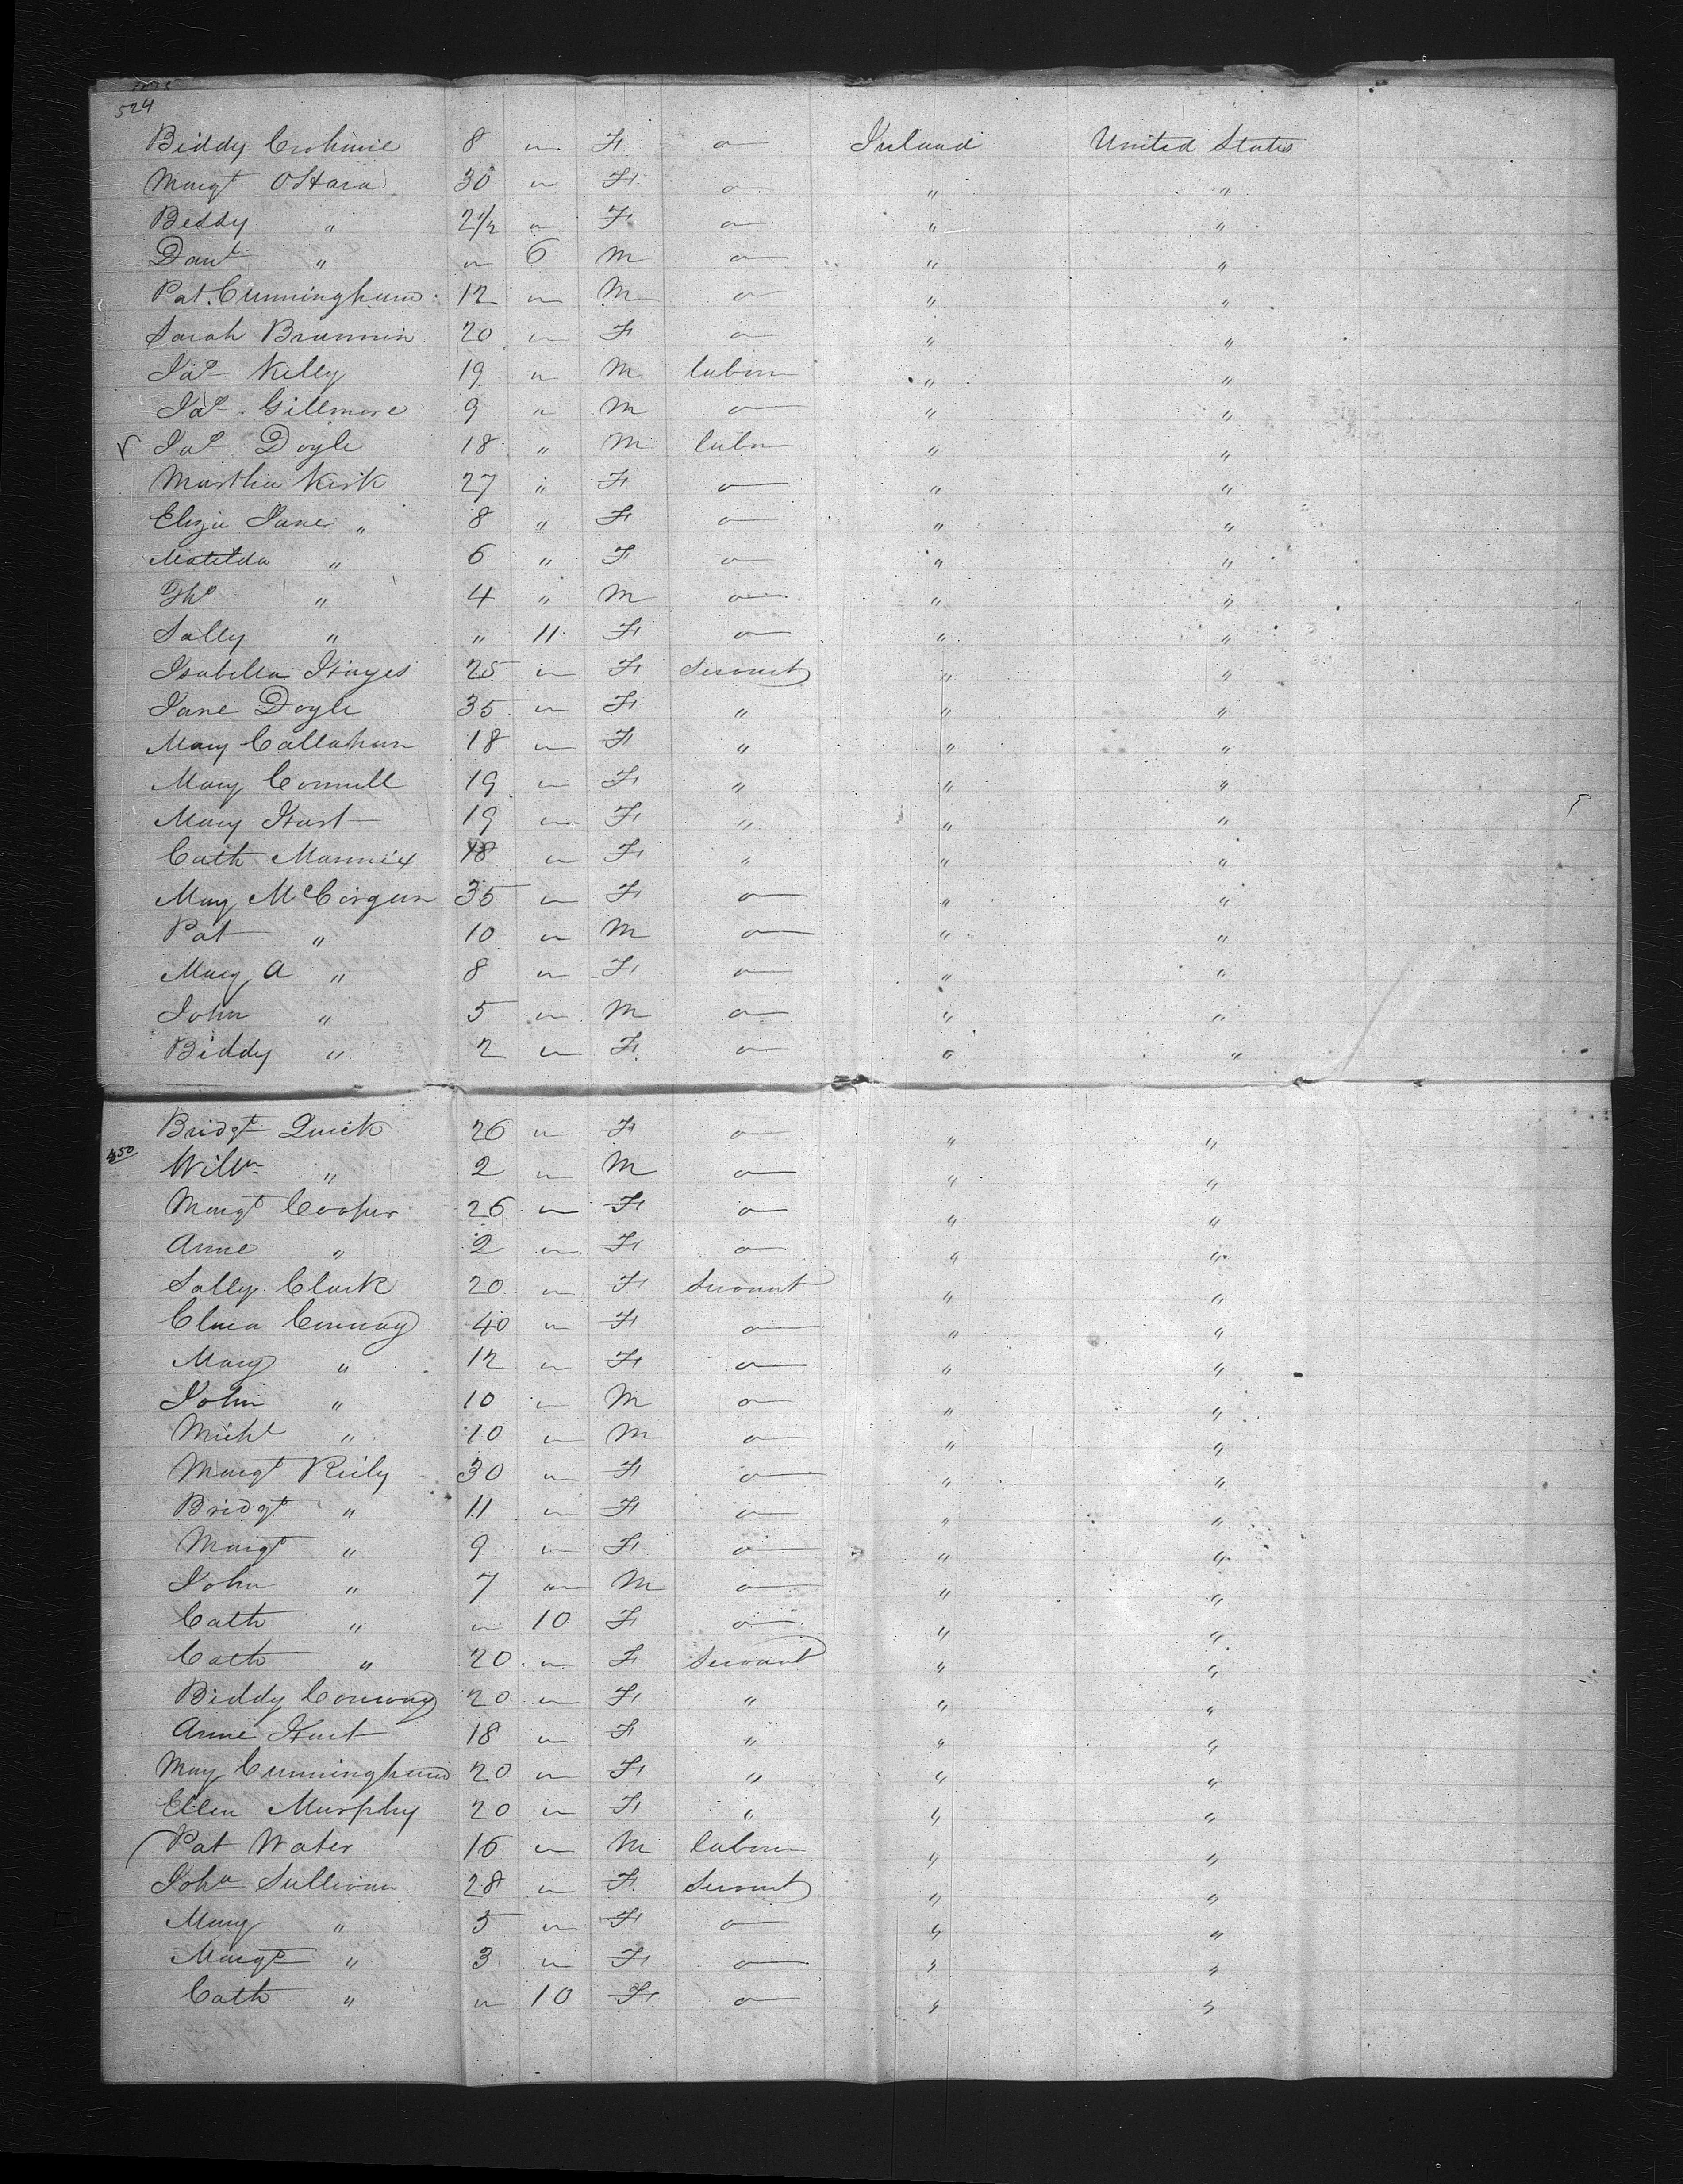 524
Biddy 8 " F — Ireland United States
Margt OHara 30 " F — " "
Biddy " 2½ " F — " "
Danl " " 6 M — " "
Pat. Cunningham 12 " M — " "
Sarah Brannin 20 " F — " "
Jas Kelly 19 " M labour " "
Jas Gillmore 9 " M — " "
Jas Doyle 18 " M labr " "
Martha Kirk 27 " F — " "
Eliza Jane " 8 " F — " "
Matilda " 6 " F — " "
Ths " 4 " M — " "
Sally " " 11 F — " "
Isabella Hayes 25 " F Servant " "
Jane Doyle 35 " F " " "
Mary Callahan 18 " F " " "
Mary Connell 19 " F " " "
Mary Hart 19 " F " " "
Cath Mannix 18 " F " " "
Mary McCorgan 35 " F — " "
Pat " 10 " M — " "
Mary A " 8 " F — " "
John " 5 " M — " "
Biddy " 2 " F — " "
Bridgt Quick 26 " F — " "
550 Willm " 2 " M — " "
Margt Cooper 26 " F — " "
Anne " 2 " F — " "
Sally Clark 20 " F Servant " "
Conway 40 " F — " "
Mary " 12 " F — " "
John " 10 " M — " "
Michl " 10 " M — " "
Margt Reily 30 " F — " "
Bridgt " 11 " F — " "
Margt " 9 " F — " "
John " 7 " M — " "
Cath " " 10 F — " "
Cath " 20 " F Servant " "
Biddy Conway 20 " F " " "
Anne Hart 18 " F " " "
Mary Cunningham 20 " F " " "
Ellen Murphy 20 " F " " "
Pat Water 16 " M labour " "
Joha Sullivan 28 " F Servant " "
Mary " 5 " F — " "
Margt " 3 " F — " "
Cath " " 10 F — " "